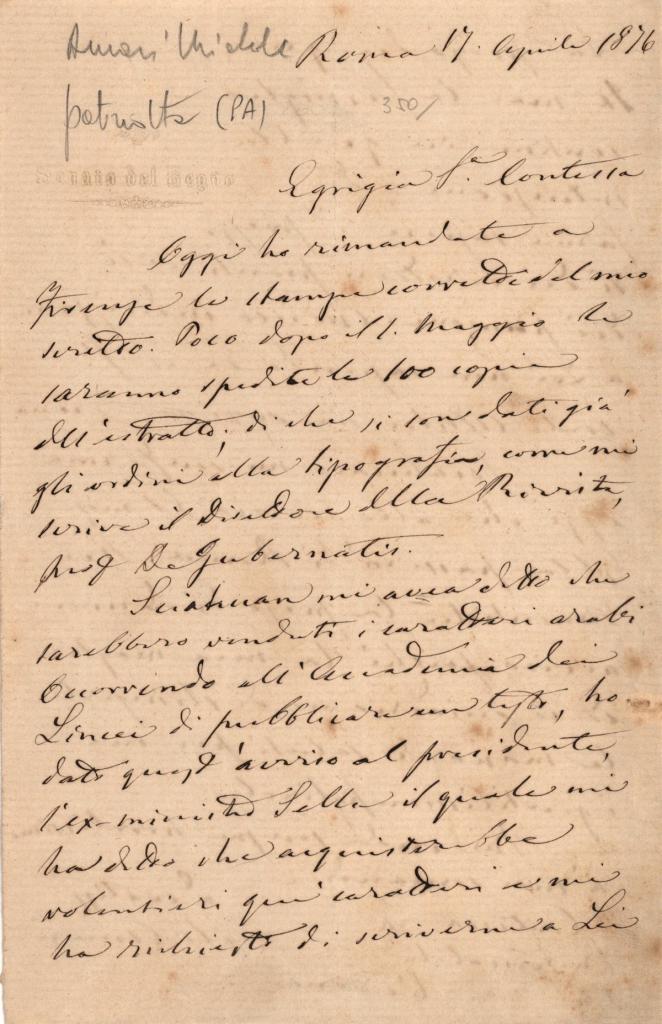 Amari Michele
patriota (PA)
350/
Senato del Regno
Roma 17. Aprile 1876
Egrigia S.ª Contessa
Oggi ho rimandate a
Firenze le stampe corrette del mio
scritto. Poco dopo il 1. Maggio le
saranno spedite le 100 copie
dell'estratto, di che si son dati già
gli ordini alla tipografia, come mi
scrive il Direttore della Rivista,
prof De Gubernatis.
mi avea detto che
sarebbero venduti i caratteri arabi
Occorrendo all'Accademia dei
Lincei di pubblicare un testo, ho
dato quest'avviso al presidente,
l'ex-ministro Sella il quale mi
ha detto che acquisterebbe
volentieri que' caratteri e mi
ha richiesto di scriverne a Lei